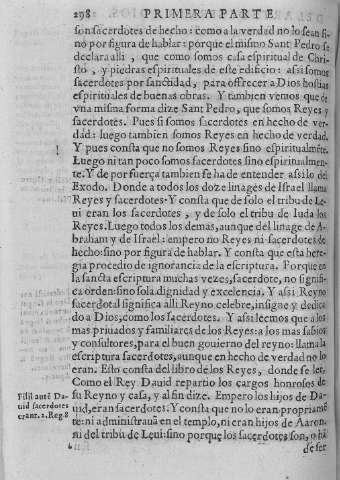 298 PRIMERA PARTE
son sacerdotes de hecho: como a la verdad no lo sean si-
no por figura de hablar: porque el mismo Sant Pedro se
declara alli, que como somos casa espiritual de Chris-
to, y piedras espirituales de este edificio: assi somos
sacerdotes por sanctidad, para offrecer a Dios hostias
espirituales de buenas obras. Y tambien vemos que de
vna misma forma dize Sant Pedro, que somos Reyes y
sacerdotes. Pues si somos sacerdotes en hecho de ver-
dad: luego tambien somos Reyes en hecho de verdad.
Y pues consta que no somos Reyes sino espiritualmẽte.
Luego ni tan poco somos sacerdotes sino espiritualmen-
te. Y de por fuerça tambien se ha de entender assi lo del
Exodo. Donde a todos los doze linages de Israel llama
Reyes y sacerdotes. Y consta que de solo el tribu de Le-
ui eran los sacerdotes, y de solo el tribu de Iuda los
Reyes. Luego todos los demas, aunque del linage de A-
braham y de Israel: empero no Reyes ni sacerdotes de
hecho: sino por figura de hablar. Y consta que esta here-
gia procedio de ignorancia de la escriptura. Porque en
la sancta escriptura muchas vezes, sacerdote, no signifi-
ca orden: sino sola dignidad y excelencia. Y assi Reyno
sacerdotal significa alli Reyno celebre, insigne y dedica
do a Dios, como los sacerdotes. Y assi leemos que a los
mas priuados y familiares de los Reyes: a los mas sabios
y consultores, para el buen gouierno del reyno: llama la
escriptura sacerdotes, aunque en hecho de verdad no lo
eran. Esto consta del libro de los Reyes, donde se lee,
Como el Rey Dauid repartio los cargos honrosos de
Filii autē Da-
uid sacerdotes
erant. 2. Reg. 8
su Reyno y casa, y al fin dize. Empero los hijos de Da-
uid, eran sacerdotes: Y consta que no lo eran propriamẽ-
te: ni administrauã en el templo, ni eran hijos de Aaron,
ni del tribu de Leui: sino porque los sacerdotes son, o hã
de ser